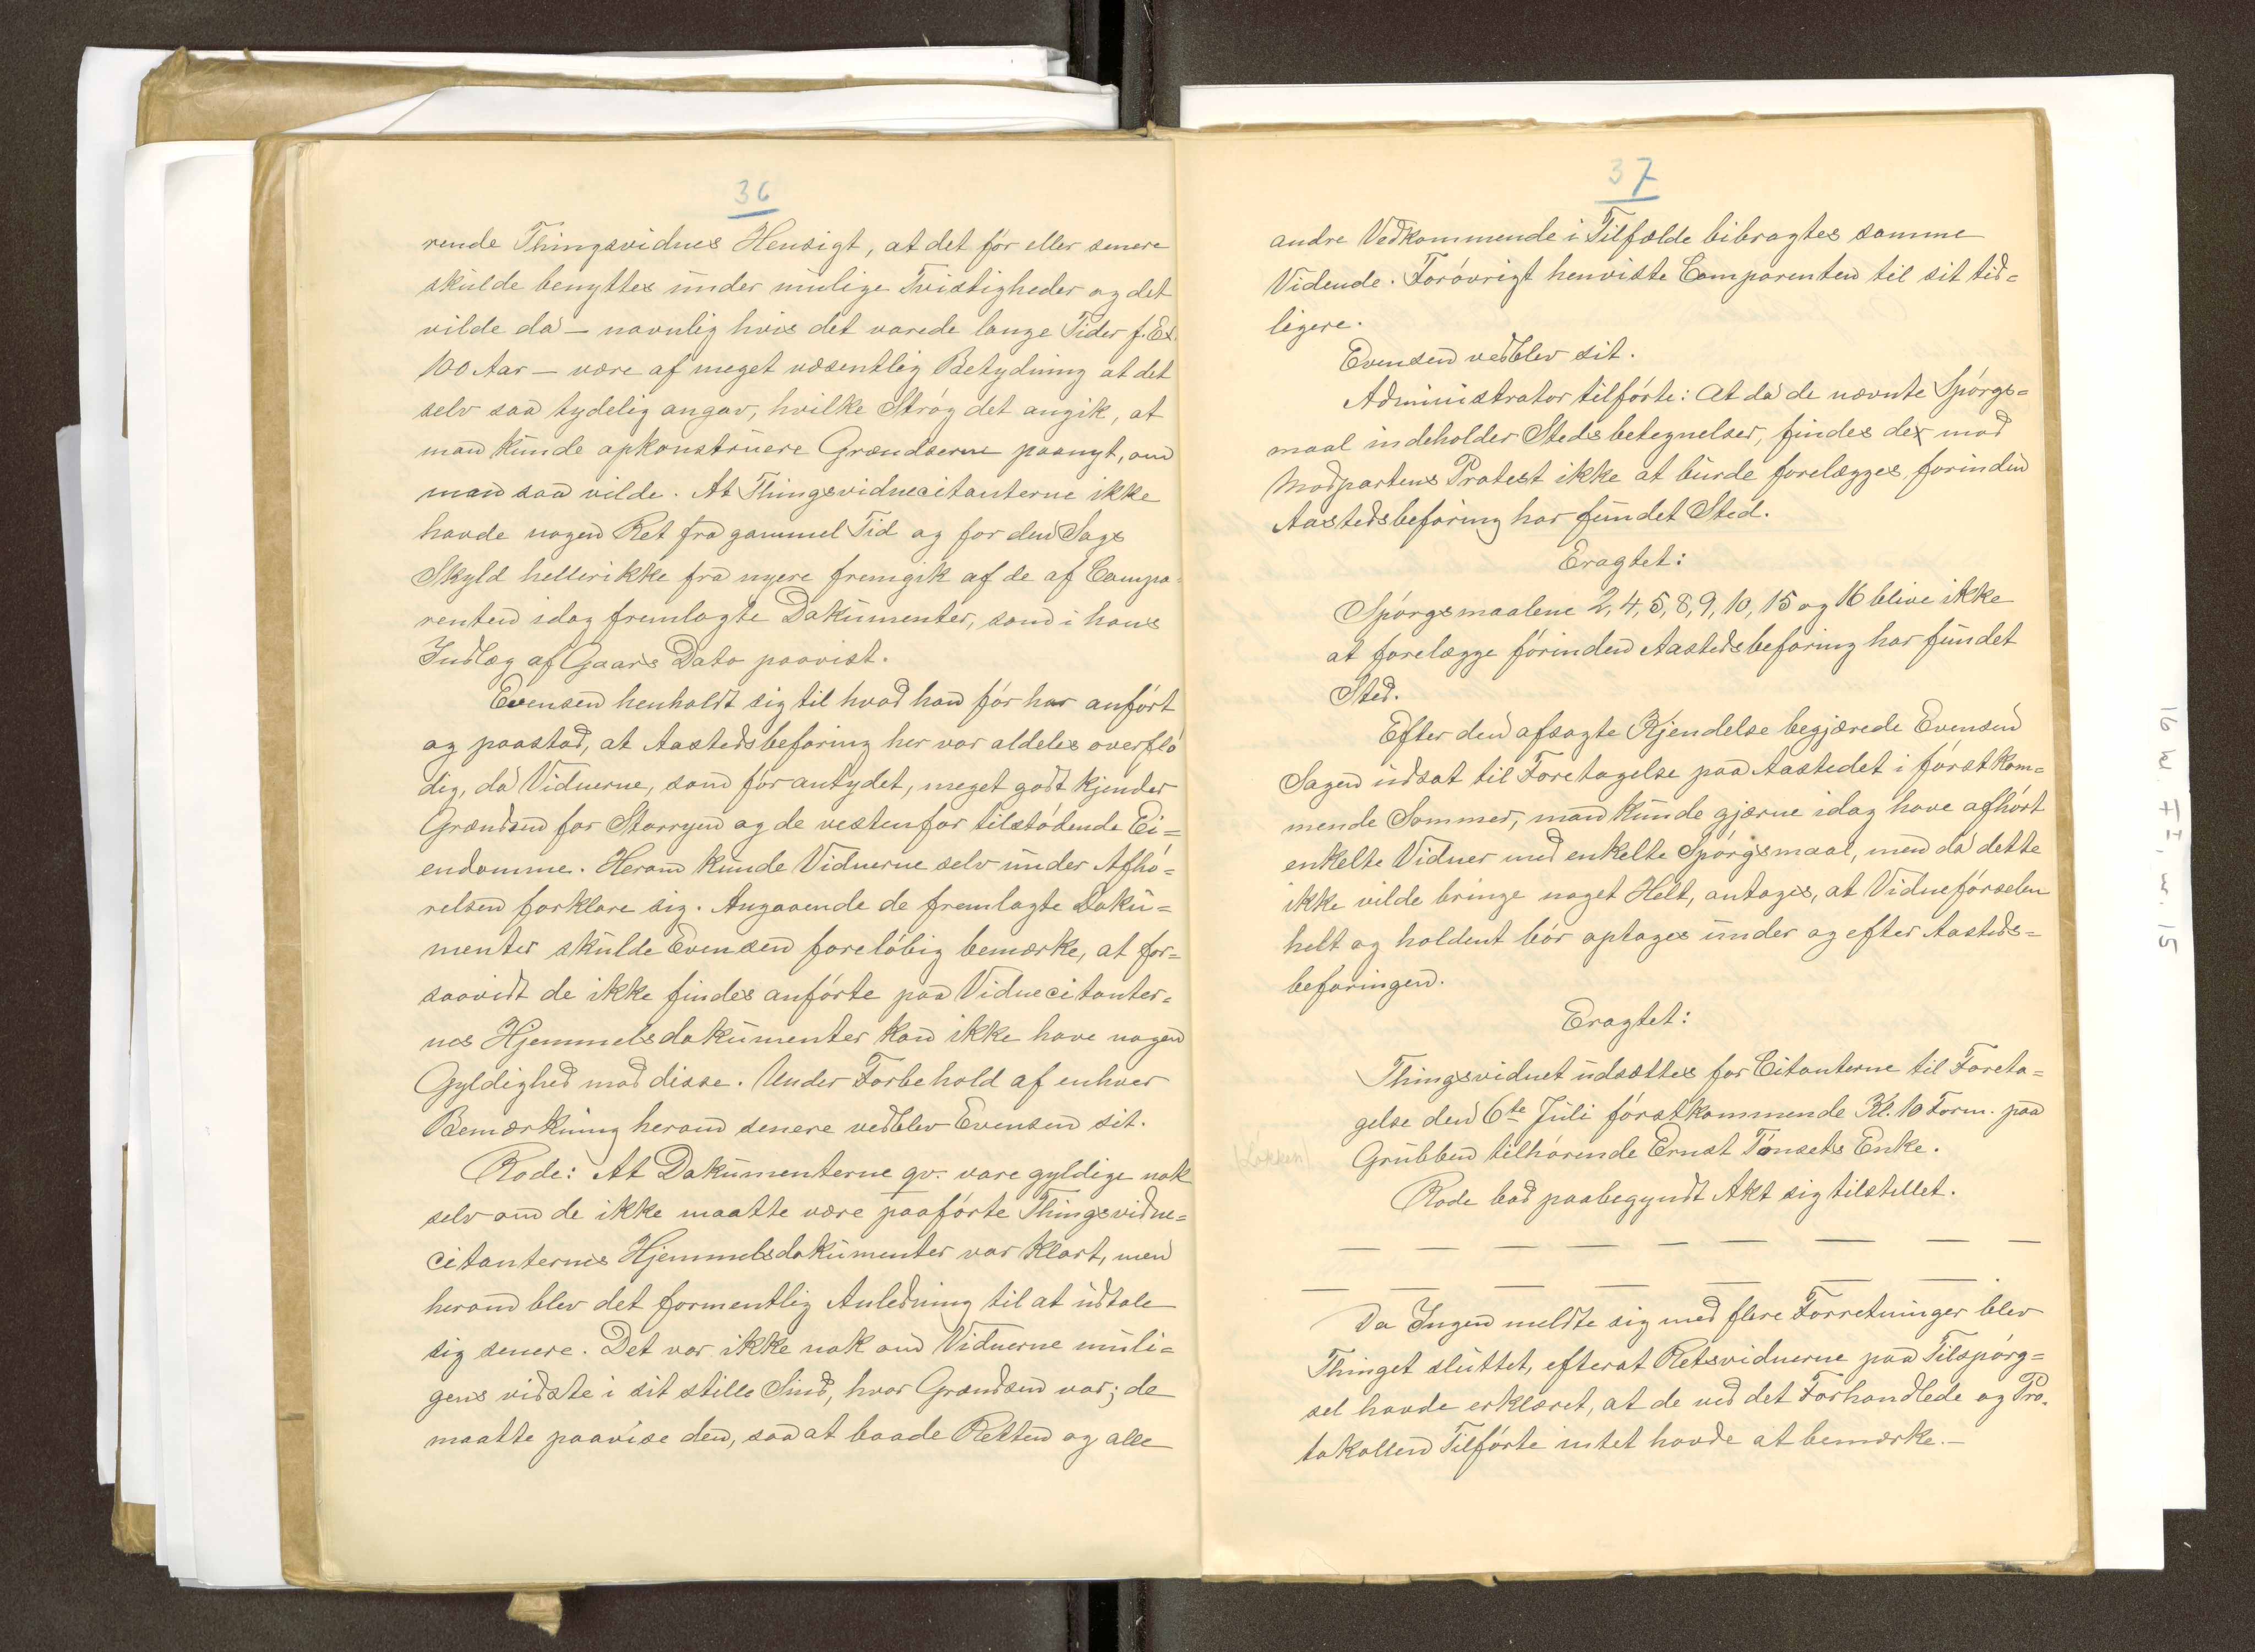 36
rende Thingsvidnes Hensigt, at det før eller senere
skulde benyttes under mulige Tvistigheder og det
vilde da – navnlig hvis det varede lange Tider f. Ex.
100 Aar – være af meget væsentlig Betydning at det
selv saa tydelig angav, hvilke Strøg det angik, at
man kunde opkonstruere Grændserne paanyt, om
man saa vilde. At Thingsvidnecitanterne ikke
havde nogen Ret fra gammel Tid og for den Sags
Skyld hellerikke fra nyere fremgik af de af Compa-
renten idag fremlagte Dokumenter, som i hans
Indlæg af Gaars Dato paavist.
Evensen henholdt sig til hvad han før har anført
og paastod, at Aastedsbefaring her var aldeles overflø
dig, da Vidnerne, som før antydet, meget godt kjender
Grændsen for Storryen og de vestenfor tilstødende Ei=
endomme. Herom kunde Vidnerne selv under Afhø=
relsen forklare sig. Angaaende de fremlagte Doku=
menter skulde Evensen foreløbig bemærke, at for=
saavidt de ikke findes anførte paa Vidnecitanter=
nes Hjemmelsdokumenter kan ikke have nogen
Gyldighed mod disse. Under Forbehold af enhver
Bemærkning herom senere vedblev Evensen sit.
Rode: At Dokumenterne qv. vare gyldige nok
selv om de ikke maatte være paaførte Thingsvidne=
citanternes Hjemmelsdokumenter var klart, men
herom blev det formentlig Anledning til at udtale
sig senere. Det var ikke nok om Vidnerne muli=
gens vidste i sit stille Sind, hvor Grændsen var; de
maatte paavise den, saa at baade Retten og alle
37
andre Vedkommende i Tilfælde bibragtes samme
Vidende. Forøvrigt henviste Comparenten til sit tid=
ligere.
Evensen vedblev sit.
Administrator tilførte: At da de nævnte Spørgs=
maal indeholder Stedsbetegnelser, findes de mod
Modpartens Protest ikke at burde forelægges, forinden
Aastedsbefaring har fundet Sted.
Eragtet:
Spørgsmaalene 2, 4, 5, 8, 9, 10, 15 og 16 blive ikke
at forelægge førinden Aastedsbefaring har fundet
Sted.
Efter den afsagte Kjendelse begjærede Evensen
Sagen udsat til Foretagelse paa Aastedet i førstkom=
mende Sommer, man kunde gjærne idag have afhørt
enkelte Vidner med enkelte Spørgsmaal, men da dette
ikke vilde bringe noget Helt, antages, at Vidneførselen
helt og holdent bør optages under og efter Aasteds=
befaringen.
Eragtet:
Thingsvidnet udsættes for Citanterne til Foreta=
gelse den 6te Juli førstkommende Kl. 10 Form. paa
(Løkken) Grubben tilhørende Ernst Tønsets Enke.
Rode bad paabegyndt Akt sig tilstillet.
— — — — — — — —
— — — — — — —
Da Ingen meldte sig med flere Forretninger blev
Thinget sluttet, efterat Retsvidnerne paa Tilspørg=
sel havde erklæret, at de ved det Forhandlede og Pro-
tokollen Tilførte intet havde at bemærke.–